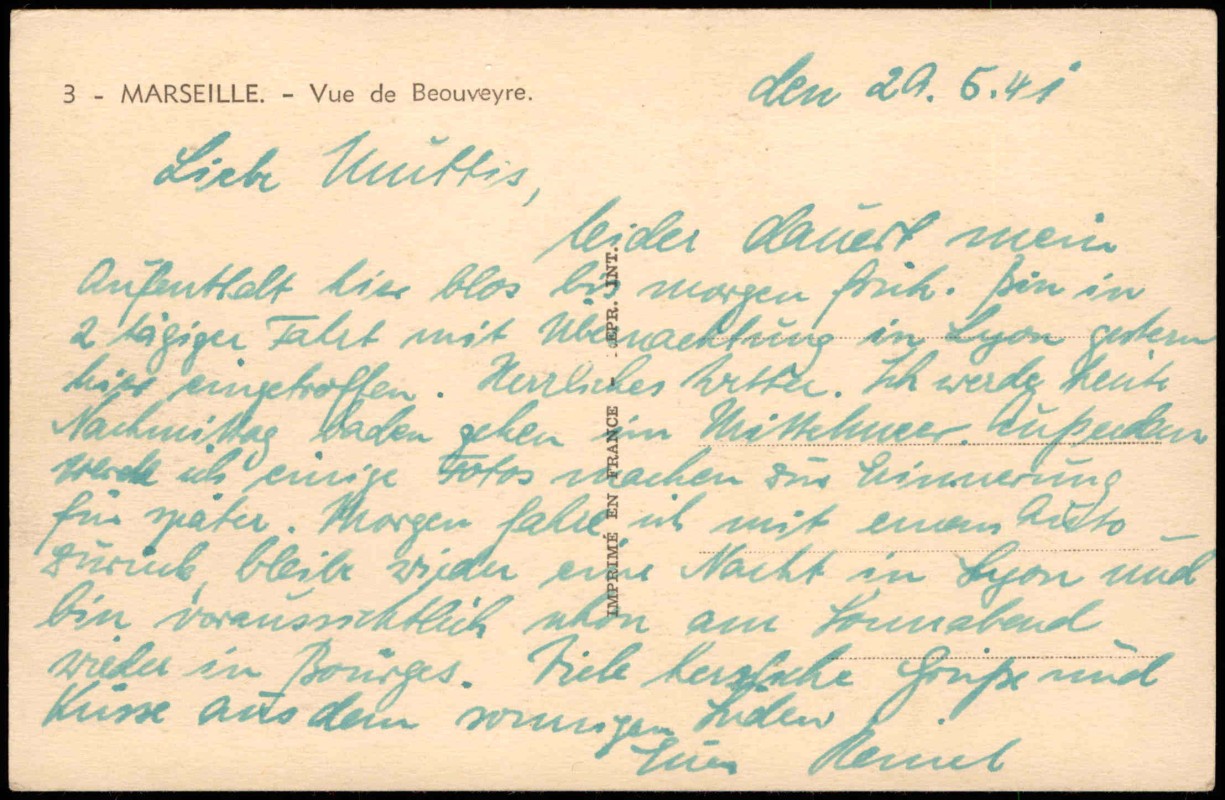 3 - MARSEILLE. - Vue de Beouveyre.
den 29. 5. 41
Liebe Muttis,
leider dauert mein
Aufenthalt hier blos bis morgen früh. Bin in
2 tägiger Fahrt mit Übernachtung in Lyon gestern
hier eingetroffen. Herrliches Wetter. Ich werde heute
Nachmittag baden gehen im Mittelmeer. Außerdem
werde ich einige Fotos machen zur Erinnerung
für später. Morgen fahre ich mit einem Auto
zurück, bleibe wieder eine Nacht in Lyon und
bin voraussichtlich schon am Sonnabend
wieder in Bourges. Viele herzliche Grüße und
Küsse aus dem sonnigen Süden
Euer
IMPRIMÉ EN FRANCE - EPR. INT.